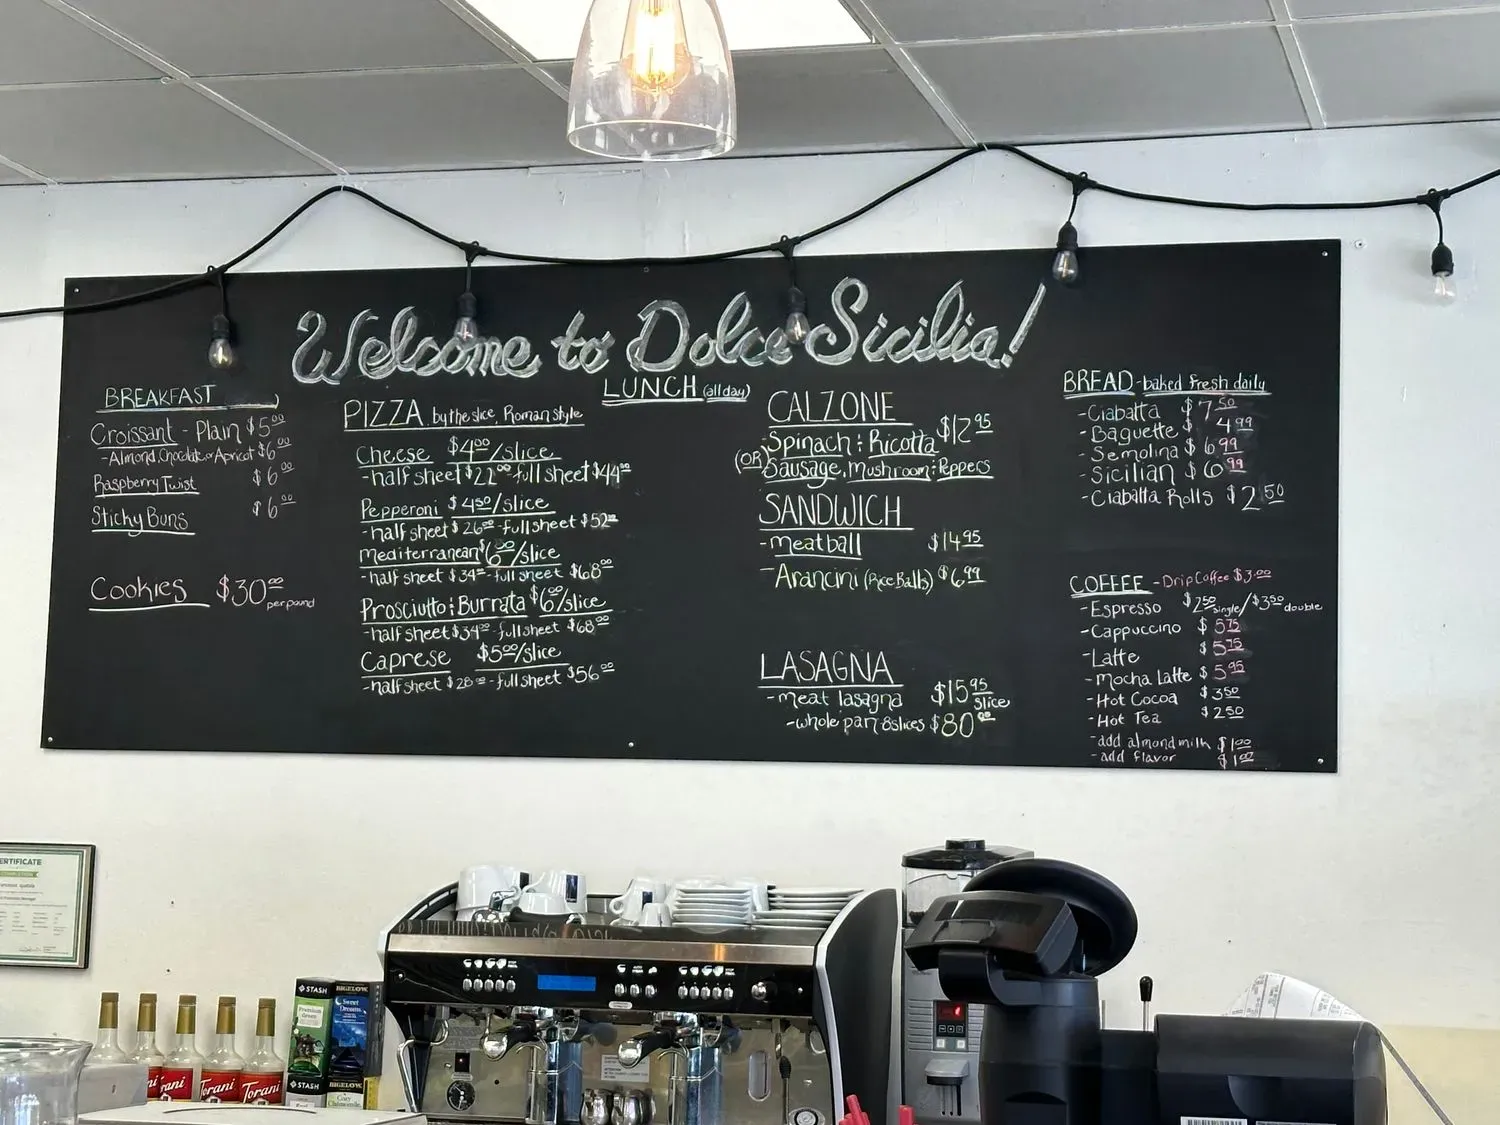 Welcome to Dolce Sicilia!
BREAKFAST
Croissant - Plain $5.00
- Almond, Chocolate, or Apricot $6.00
Raspberry Twist $6.00
Sticky Buns $6.00
Cookies $30.00 per pound
LUNCH (all day)
PIZZA by the slice, Roman style
Cheese $4.00/slice
- half sheet $22.00 - full sheet $44.00
Pepperoni $4.50/slice
- half sheet $26.00 - full sheet $52.00
Mediterranean $6.00/slice
- half sheet $34.00 - full sheet $68.00
Prosciutto & Burrata $6.00/slice
- half sheet $34.00 - full sheet $68.00
Caprese $5.00/slice
- half sheet $28.00 - full sheet $56.00
CALZONE
Spinach & Ricotta $12.95
(OR) Sausage, Mushroom & Peppers
SANDWICH
- meatball $14.95
- Arancini (Rice Balls) $6.99
LASAGNA
- meat lasagna $15.95 slice
- whole pan 8 slices $80.00
BREAD - baked fresh daily
- Ciabatta $7.50
- Baguette $4.99
- Semolina $6.99
- Sicilian $6.99
- Ciabatta Rolls $2.50
COFFEE - Drip Coffee $3.00
- Espresso $2.50 single/$3.50 double
- Cappuccino $5.75
- Latte $5.75
- Mocha Latte $5.95
- Hot Cocoa $3.50
- Hot Tea $2.50
- add almond milk $1.00
- add flavor $1.00
ERTIFICATE
STASH
Premium Green
BIGELOW
Sweet Dreams
STASH
BIGELOW
Cozy Chamomile
rani
Torani
Torani